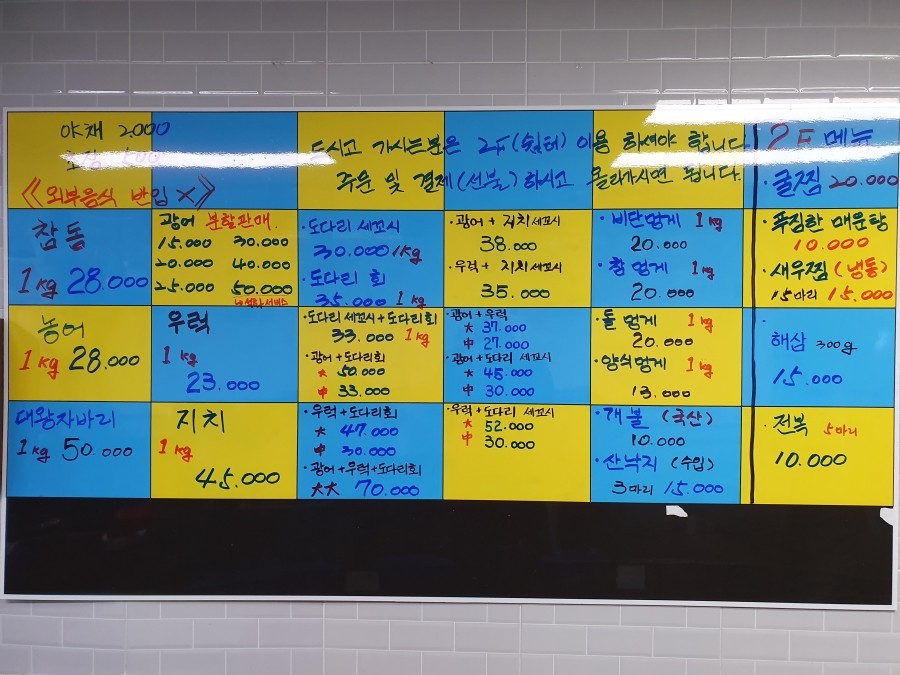 야채 2.000
초장 500
《외부음식 반입 X》
드시고 가시는분은 2F(쉼터) 이용 하셔야 합니다
주문 및 결제(선불) 하시고 올라가시면 됩니다.
2F 메뉴
굴찜 20.000
참돔
1kg 28.000
광어 분할판매.
15.000 30.000
20.000 40.000
25.000 50.000
서비스
·도다리 세꼬시
30.000 1kg
·도다리 회
35.000 1kg
·광어 + 지치 세꼬시
38.000
·우럭 + 지치 세꼬시
35.000
·비단멍게 1kg
20.000
·참멍게 1kg
20.000
·푸짐한 매운탕
10.000
·새우찜 (냉동)
15마리 15.000
농어
1kg 28.000
우럭
1kg
23.000
·도다리 세꼬시+도다리회
33.000 1kg
·광어+도다리회
大 50.000
中 33.000
·광어+우럭
大 37.000
中 27.000
·광어+도다리 세꼬시
大 45.000
中 30.000
·돌멍게 1kg
20.000
·양식멍게 1kg
13.000
·해삼 300g
15.000
대왕자바리
1kg 50.000
지치
1kg
45.000
·우럭+도다리회
大 47.000
中 30.000
·광어+우럭+도다리회
大大 70.000
·우럭+도다리 세꼬시
大 52.000
中 30.000
·개불 (국산)
10.000
·산낙지 (수입)
3마리 15.000
·전복 5마리
10.000